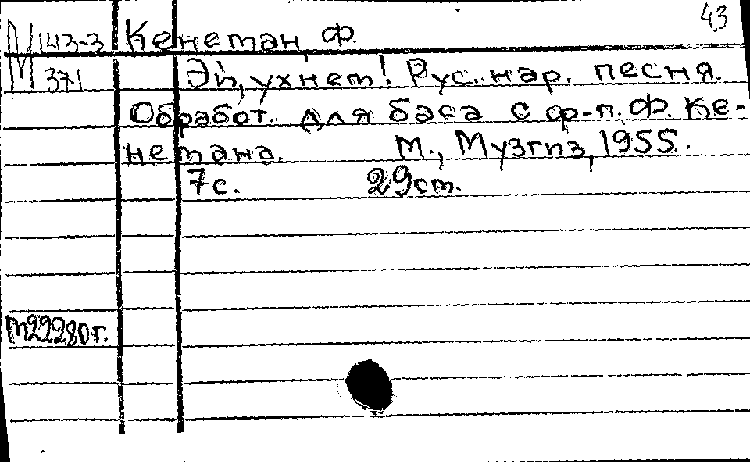 43
М143-3 Кенеман, Ф.
М371 Эй, ухнем! Рус. нар. песня.
Обработ. для баса с ф-п. Ф. Ке-
немана. М., Музгиз, 1955.
7с. 29см.
М22280г.